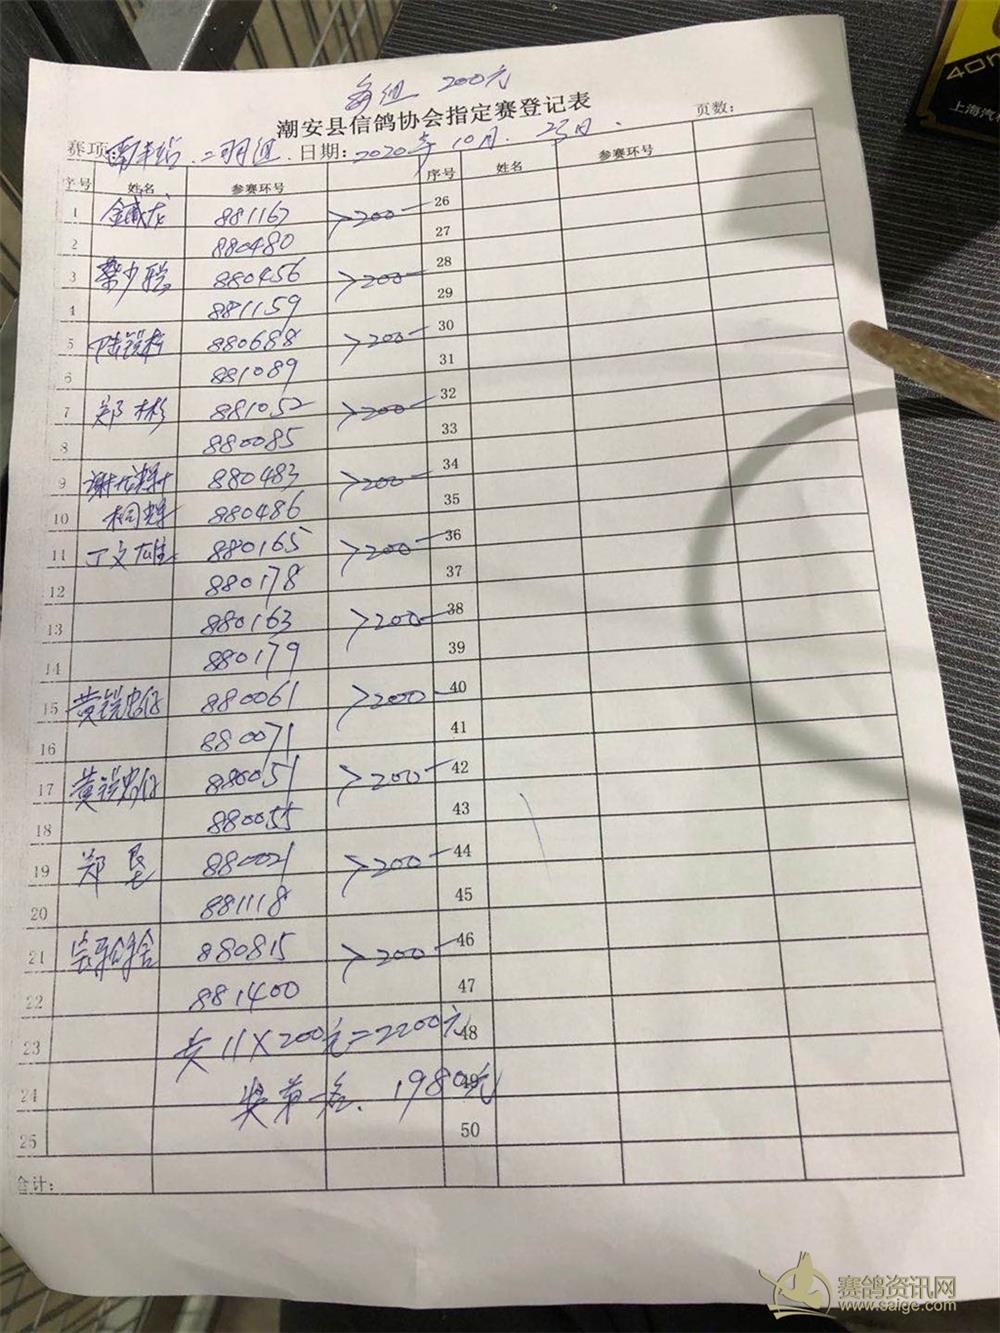 每组 200元
潮安县信鸽协会指定赛登记表
页数：
赛项 南丰站 二羽组 日期：2020年10月23日
序号 姓名 参赛环号 序号 姓名 参赛环号
1 881167 >200- 26
2 880480 27
3 880456 >200- 28
4 881159 29
5 880688 >200- 30
6 881089 31
7 郑彬 881052 >200- 32
8 880085 33
9 880483 >200- 34
10 880486 35
11 丁文雄 880165 >200- 36
12 880178 37
13 880163 >200- 38
14 880179 39
15 880061 >200- 40
16 880071 41
17 880051 >200- 42
18 880055 43
19 郑 880021 >200- 44
20 881118 45
21 880815 >200- 46
22 881400 47
23 共11X200元=2200元 48
24 奖第一名. 1980元 49
25 50
合计：
40m
上海汽
赛鸽资讯网
www.saige.com